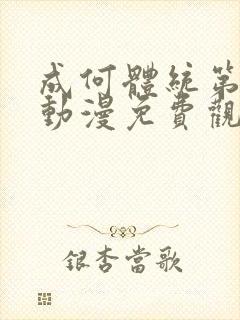 成何體統第
動漫免費觀
銀杏當歌